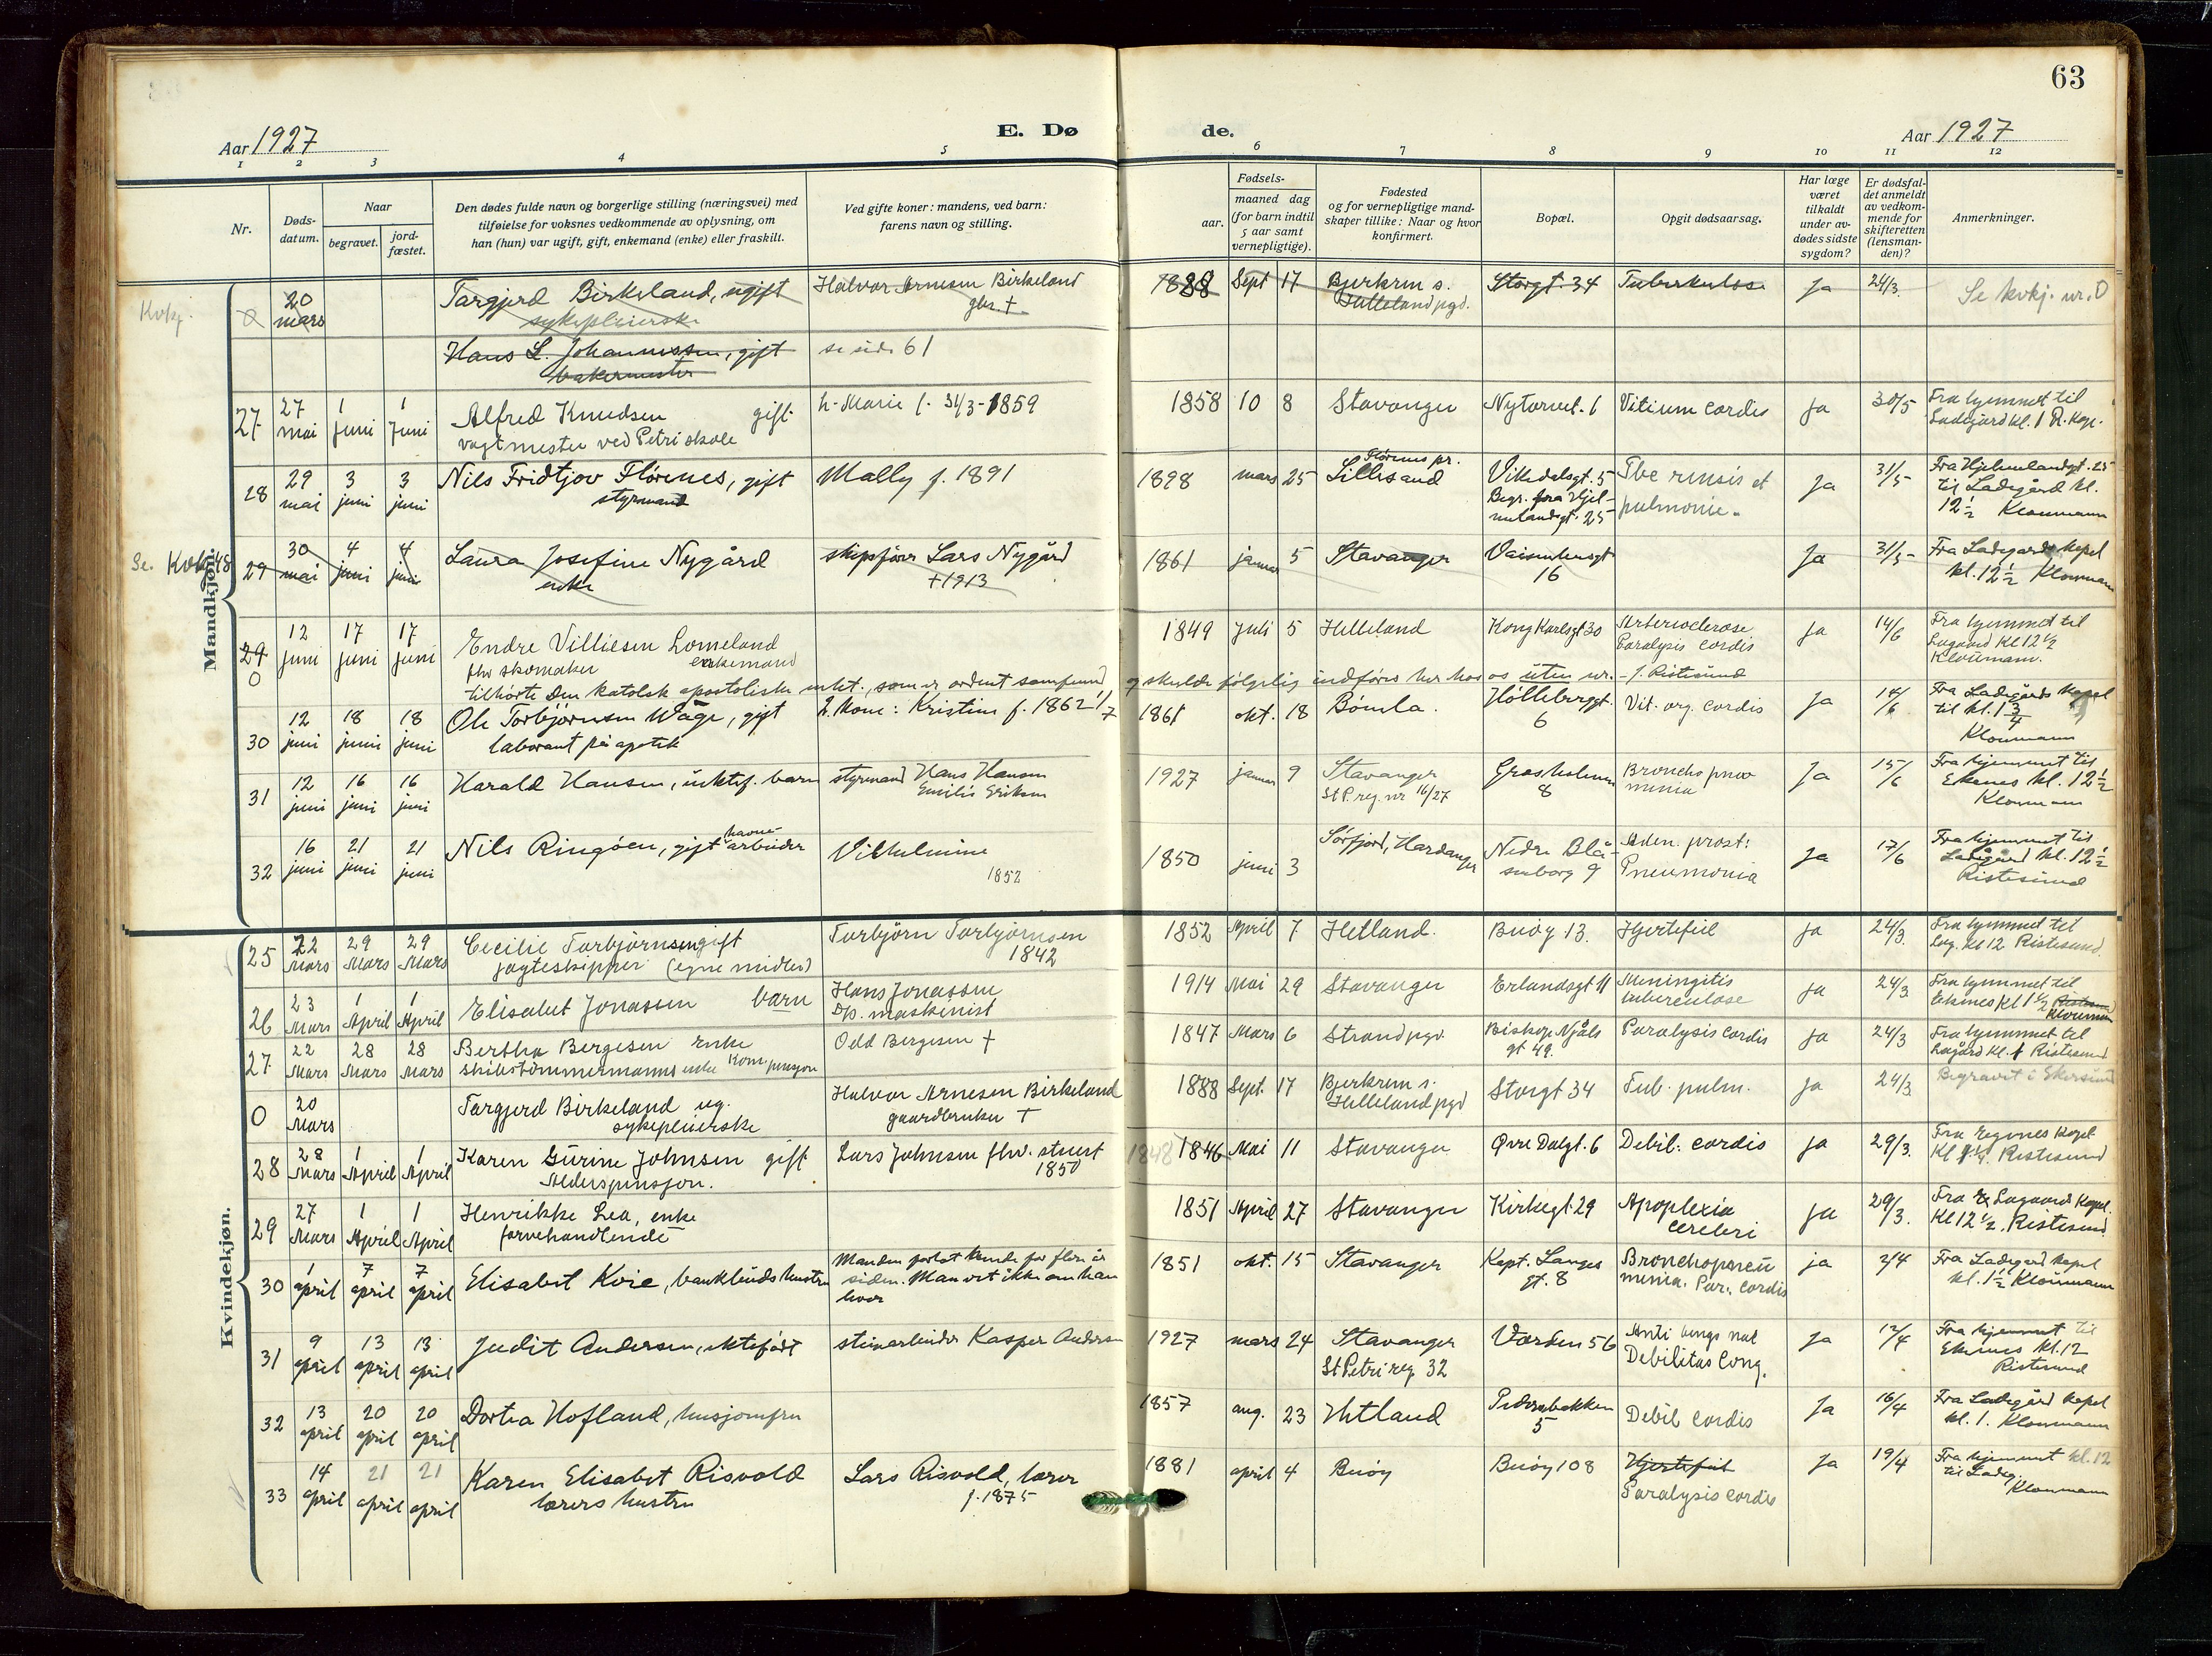 63
Aar 1927
E. Dø
de.
Aar 1927
1 2 3 4 5 6 7 8 9 10 11 12
Nr.
Døds-
datum.
Naar
begravet.
jord-
fæstet.
Den dødes fulde navn og borgerlige stilling (næringsvei) med
tilføielse for voksnes vedkommende av oplysning, om
han (hun) var ugift, gift, enkemand (enke) eller fraskilt.
Ved gifte koner: mandens, ved barn:
farens navn og stilling.
Fødsels-
aar.
maaned dag
(for barn indtil
5 aar samt
vernepligtige).
Fødested
og for vernepligtige mand-
skaper tillike: Naar og hvor
konfirmert.
Bopæl.
Opgit dødsaarsag.
Har læge
været
tilkaldt
under av-
dødes sidste
sygdom?
Er dødsfal-
det anmeldt
av vedkom-
mende for
skifteretten
(lensman-
den)?
Anmerkninger.
Mandkjøn.
Kvkj.
0 20 mars
Targjerd Birkeland, ugift
sykepleierske
Halvor Arnesen Birkeland
gbr. †
1888 Sept 17
Bjerkrem s.
Helleland pgd.
Storgt. 34
Tuberkulose
Ja
24/3.
Se kvkj. nr. 0
Hans L. Johannessen, gift
bakermester
se side 61
27 27 mai 1 juni 1 juni
Alfred Knudsen gift
vagtmester ved Petri skole
h. Marie f. 31/3-1859
1858 10 8
Stavanger
Nytorvet. 1
Vitium cordis
ja
30/5
Fra hjemmet til
Ladegård kl. 1 R. Kap.
28 29 mai 3 juni 3 juni
Nils Fridtjov Florenes, gift
styrmand
Mally f. 1891
1898 mars 25
Florenes pr.
Lillesand
Vikedalsgt. 5
Begr. fra Hjel-
melandsgt. 25
Tbc rensis et
pulmonie.
ja
31/5
Fra Hjelmelandgt. 25
til Ladegård kl.
12½ Kloumann
Se. Kvkj 48
29 30 mai 4 juni 4 juni
Laura Josefine Nygård
enke
skipsfører Lars Nygård
† 1913
1861 januar 5
Stavanger
Vaisenhusgt
16
Ja
31/5
Fra Ladegårds kapel
kl. 12½ Kloumann
29 0 12 juni 17 juni 17 juni
Endre Villiesen Lomeland
fhv skomaker enkemand
1849 Juli 5
Helleland
Kong Karlsgt 30
Arteriosclerose
Paralysis cordis
ja
14/6
Fra hjemmet til
Lagaard Kl 12½
Kloumann.
tilhørte den katolsk apostoliske menkt., som er ordent samfund og skulde følgelig indføres her hos os uten nr. - J. Ristesund
30 12 juni 18 juni 18 juni
Ole Torbjørnsen Våge, gift
laborant på apotek
h. Kone: Kristine f. 1862 1/7
1861 okt. 18
Bømla.
Hølleberggt.
6
Vit. org. cordis
Ja
14/6
Fra Ladegårds kapel
til kl. 1¾
Kloumann
31 12 juni 16 juni 16 juni
Harald Hansen, uektef. barn
styrmand Hans Hansen
Emilie Eriksen
1927 januar 9
Stavanger
St P. reg. nr 16/27
Grasholmen
8
Bronchopneu
monia
Ja
15/6
Fra hjemmet til
Ekenes kl. 12½
Kloumann
32 16 juni 21 juni 21 juni
Nils Ringøen, gift havne-
arbeider
Vilhelmine
1852
1850 juni 3
Sørfjord, Hardanger
Nedre Blå-
senborg 9
Aden. prost:
Pneumonia
Ja
17/6
Fra hjemmet til
Ladegård kl. 12½
Ristesund
Kvindekjøn.
25 22 Mars 29 Mars 29 Mars
Cecilie Torbjørnsen gift
jagteskipper (egne midler)
Torbjørn Torbjørnsen
1842
1852 April 7
Hetland.
Buøy 13.
Hjertefeil
ja
24/3.
Fra hjemmet til
Lag. kl 12 Ristesund.
26 23 Mars 1 April 1 April
Elisabet Jonassen barn
Hans Jonassen
D/s. maskinist
1914 Mai 29
Stavanger
Erlandsgt 11
Meningitis
tuberculose
ja
24/3
Fra hjemmet til
Eksenes Kl 1½ Ristesund
Kloumann
27 22 Mars 28 Mars 28 Mars
Bertha Bergesen enke
skibstømmermanns enke Kom. pensjon
Odd Bergesen †
1847 Mars 6
Strand pgd.
Biskop Njåls
gt 49.
Paralysis cordis
ja
24/3
Fra hjemmet til
Lagård kl. 1 Ristesund
0 20 Mars
Targjerd Birkeland ug.
sykepleierske
Halvor Arnesen Birkeland
gaardbruker †
1888 Sept. 17
Bjerkrem s.
Helleland pgd
Storgt 34
Tub. pulm.
ja
24/3.
Begravet i Ekersund
28 28 Mars 1 April 1 April
Karen Gurine Johnsen gift
Alderspensjon.
Lars Johnsen fhv. stuert
1850
1848 1846 Mai 11
Stavanger
Øvre Dalgt. 6
Debil. cordis
ja
29/3.
Fra Egenes Kapel
Kl 1¼. Ristesund
29 27 Mars 1 April 1 April
Henrikke Lea, enke
farvehandlende
1851 April 27
Stavanger
Kirkegt 29
Apoplexia
cerebri
ja
29/3.
Fra Lagaard Kapel.
Kl 12½. Ristesund
30 1 april 7 april 7 april
Elisabet Kvie, bankbuds hustru
Manden forlot hende for flere år
siden. Man vet ikke om han
lever
1851 okt. 15
Stavanger
Kapt. Langes
gt. 8
Bronchopneu
monia. Par. cordis
ja
2/4
Fra Ladegård kapel
kl. 1½ Kloumann
31 9 april 13 april 13 april
Judit Andersen, ektefødt
stenarbeider Kasper Andersen
1927 mars 24
Stavanger
St Petri reg 32
Varden 56
Debilitas Cong.
Ja
12/4
Fra hjemmet til
Ekenes kl. 12
Ristesund
32 13 april 20 april 20 april
Dortea Hofland, husjomfru
1857 aug. 23
Hetland
Pedersbakken
5
Debil cordis
Ja
16/4
Fra Ladegård kapel
kl. 1. Kloumann
33 14 april 21 april 21 april
Karen Elisabet Risvold
lærers hustru
Lars Risvold, lærer
f. 1875
1881 april 4
Buøy
Buøy 108
Hjertefeil
Paralysis cordis
Ja
19/4
Fra hjemmet kl. 12
til Ladeg.
Kloumann